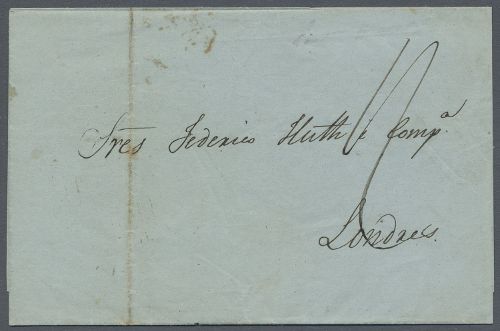 Sres Federico Huth é Compª.
Londres.